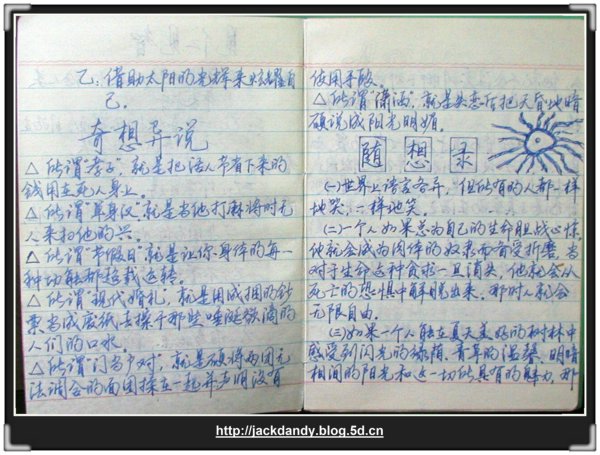 乙：借助太阳的光辉来炫耀自
己。
奇想异说
△ 所谓“孝子”，就是把活人节省下来的
钱用在死人身上。
△ 所谓“单身汉”就是当他打麻将时无
人来扫他的兴。
△ 所谓“节假日”就是让你身体的每一
种功能都超载运转。
△ 所谓“现代婚礼”，就是用成捆的钞
票当成废纸去擦干那些唾涎欲滴的
人们的口水。
△ 所谓“门当户对”，就是硬将两团无
法调合的面团揉在一起并声明没有
使用手段。
△ 所谓“潇洒”，就是失意后把天昏地暗
硬说成阳光明媚。
随想录
(一)世界上语言各异，但所有的人都一样
地哭，一样地笑。
(二)一个人如果总为自己的生命胆战心惊，
他就会成为肉体的奴隶而备受折磨，当
对于生命这种贪婪一旦消失，他就会从
死亡的恐惧中解脱出来，那时人就会
无限自由。
(三)如果一个人能在夏天美好的树林中
感受到闪光的绿荫、青草的温馨、明暗
相间的阳光和这一切所具有的魅力，那
http://jackdandy.blog.5d.cn